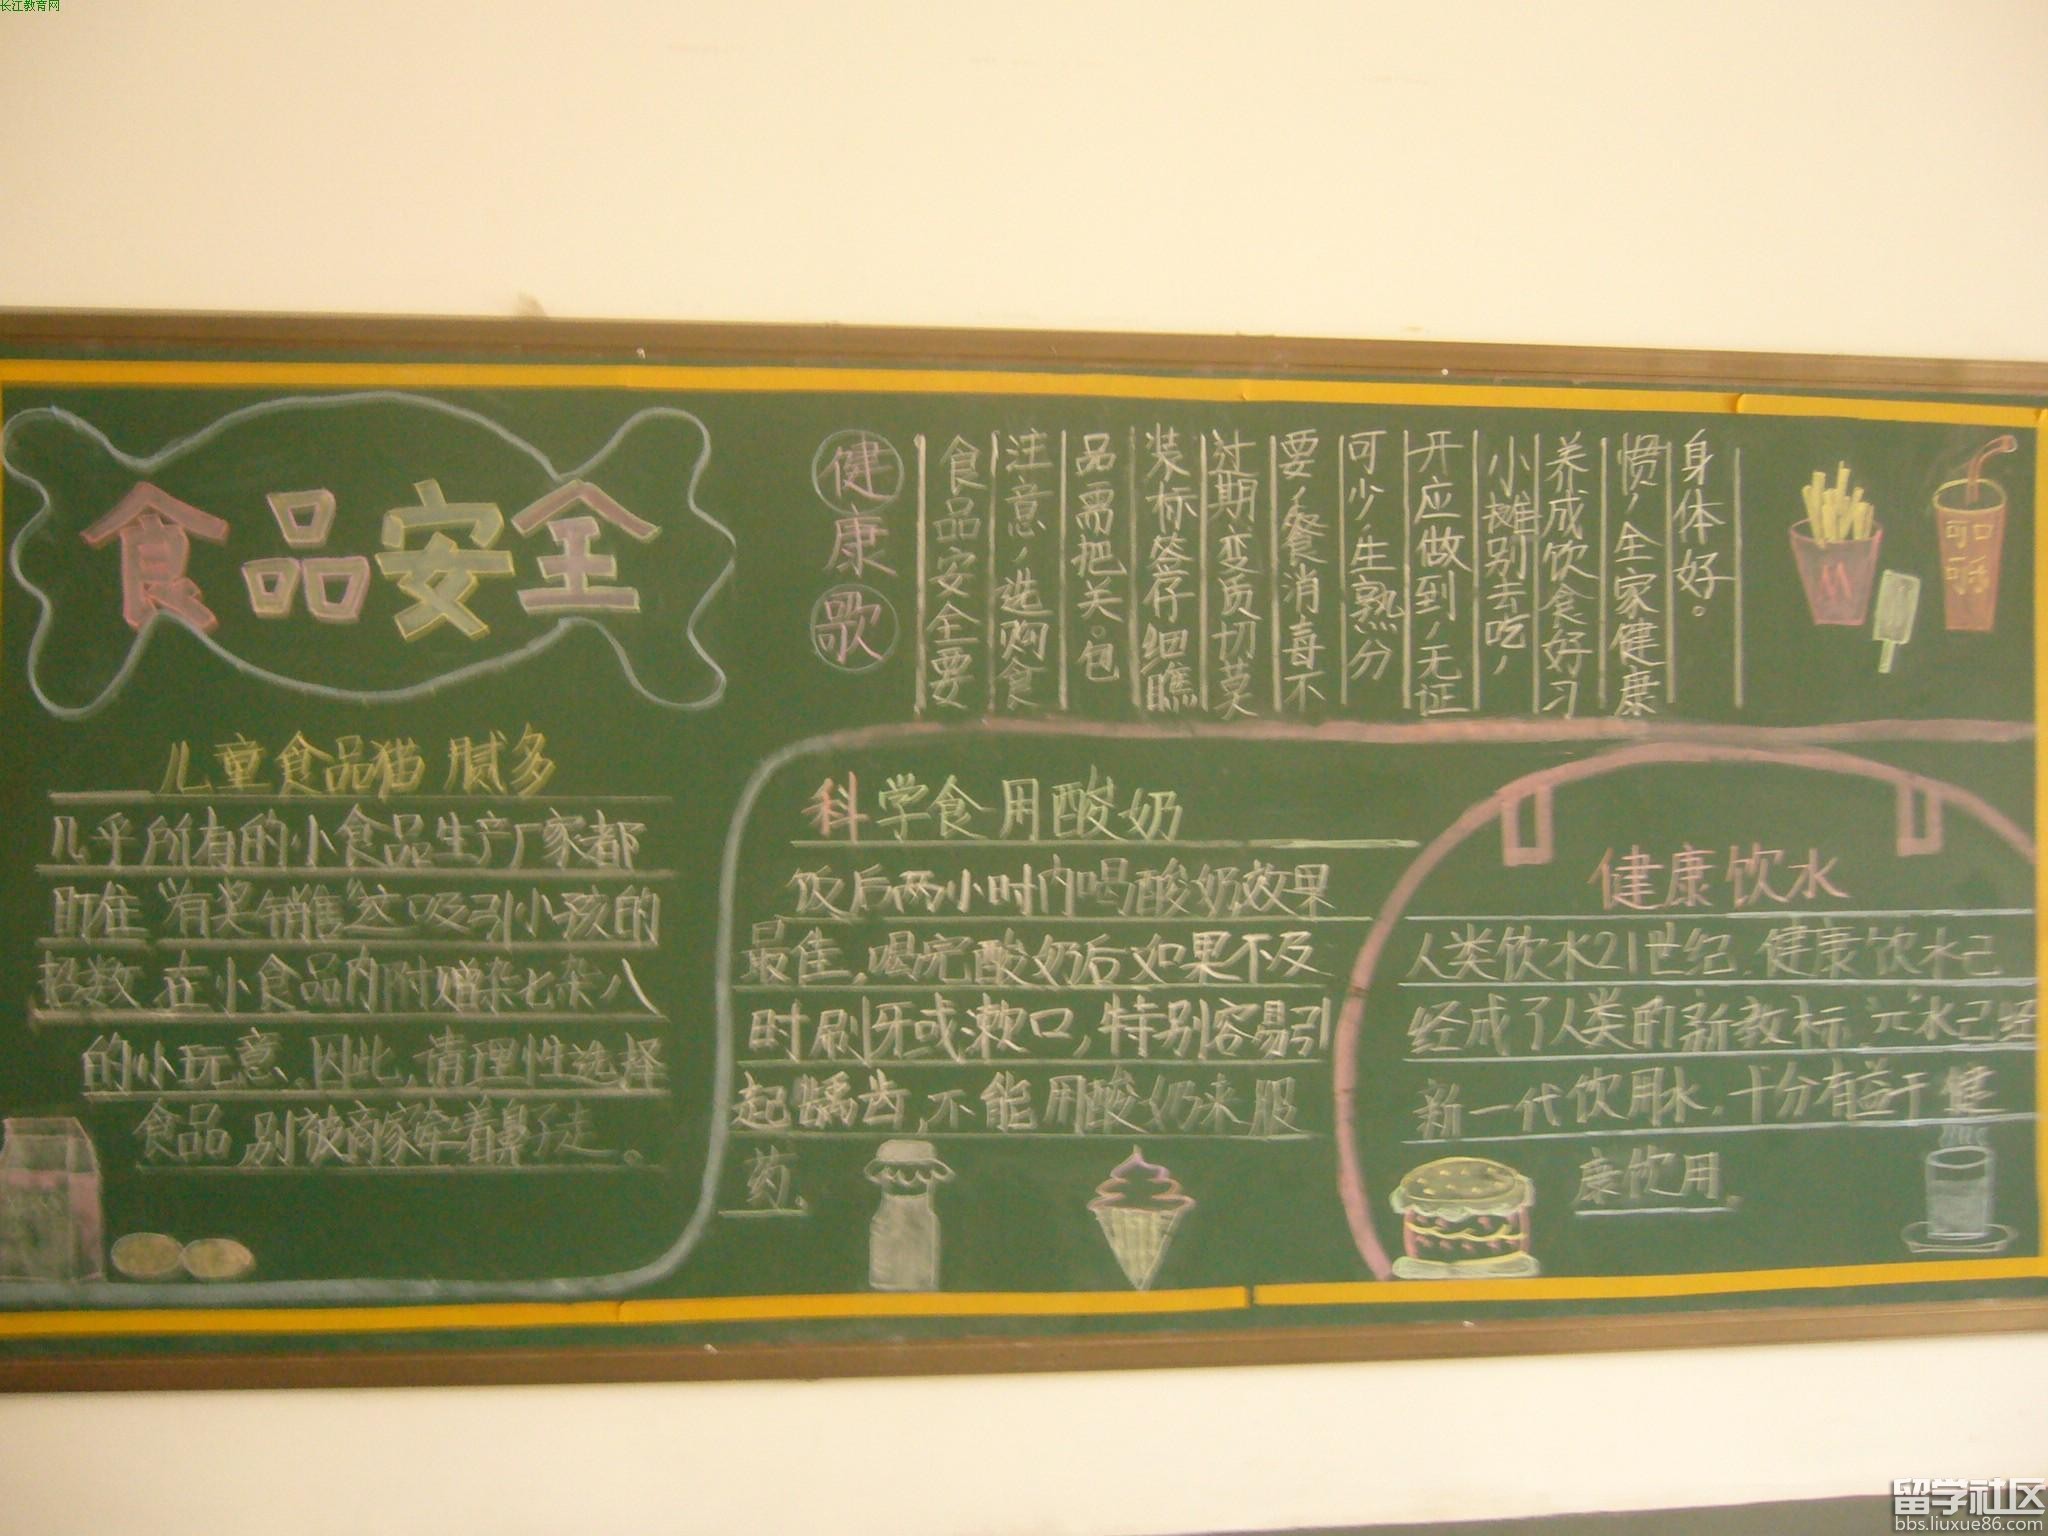 长江教育网
食品安全
健康歌
食品安全要
注意，选购食
品需把关。包
装标签仔细瞧
过期变质切莫
要，餐消毒不
可少，生熟分
开应做到，无证
小摊别去吃，
养成饮食好习
惯，全家健康
身体好。
可口
可乐
儿童食品猫腻多
几乎所有的小食品生产厂家都
盯住"有奖销售"这吸引小孩的
招数，在小食品内附赠杂七杂八
的小玩意。因此，请理性选择
食品，别被商家牵着鼻子走。
科学食用酸奶
饭后两小时内喝酸奶效果
最佳，喝完酸奶后如果不及
时刷牙或漱口，特别容易引
起龋齿，不能用酸奶来服
药。
健康饮水
人类饮水21世纪，健康饮水已
经成了人类的新教标，水已经
新一代饮用水，十分有益于健
康饮用。
留学社区
bbs.liuxue86.com